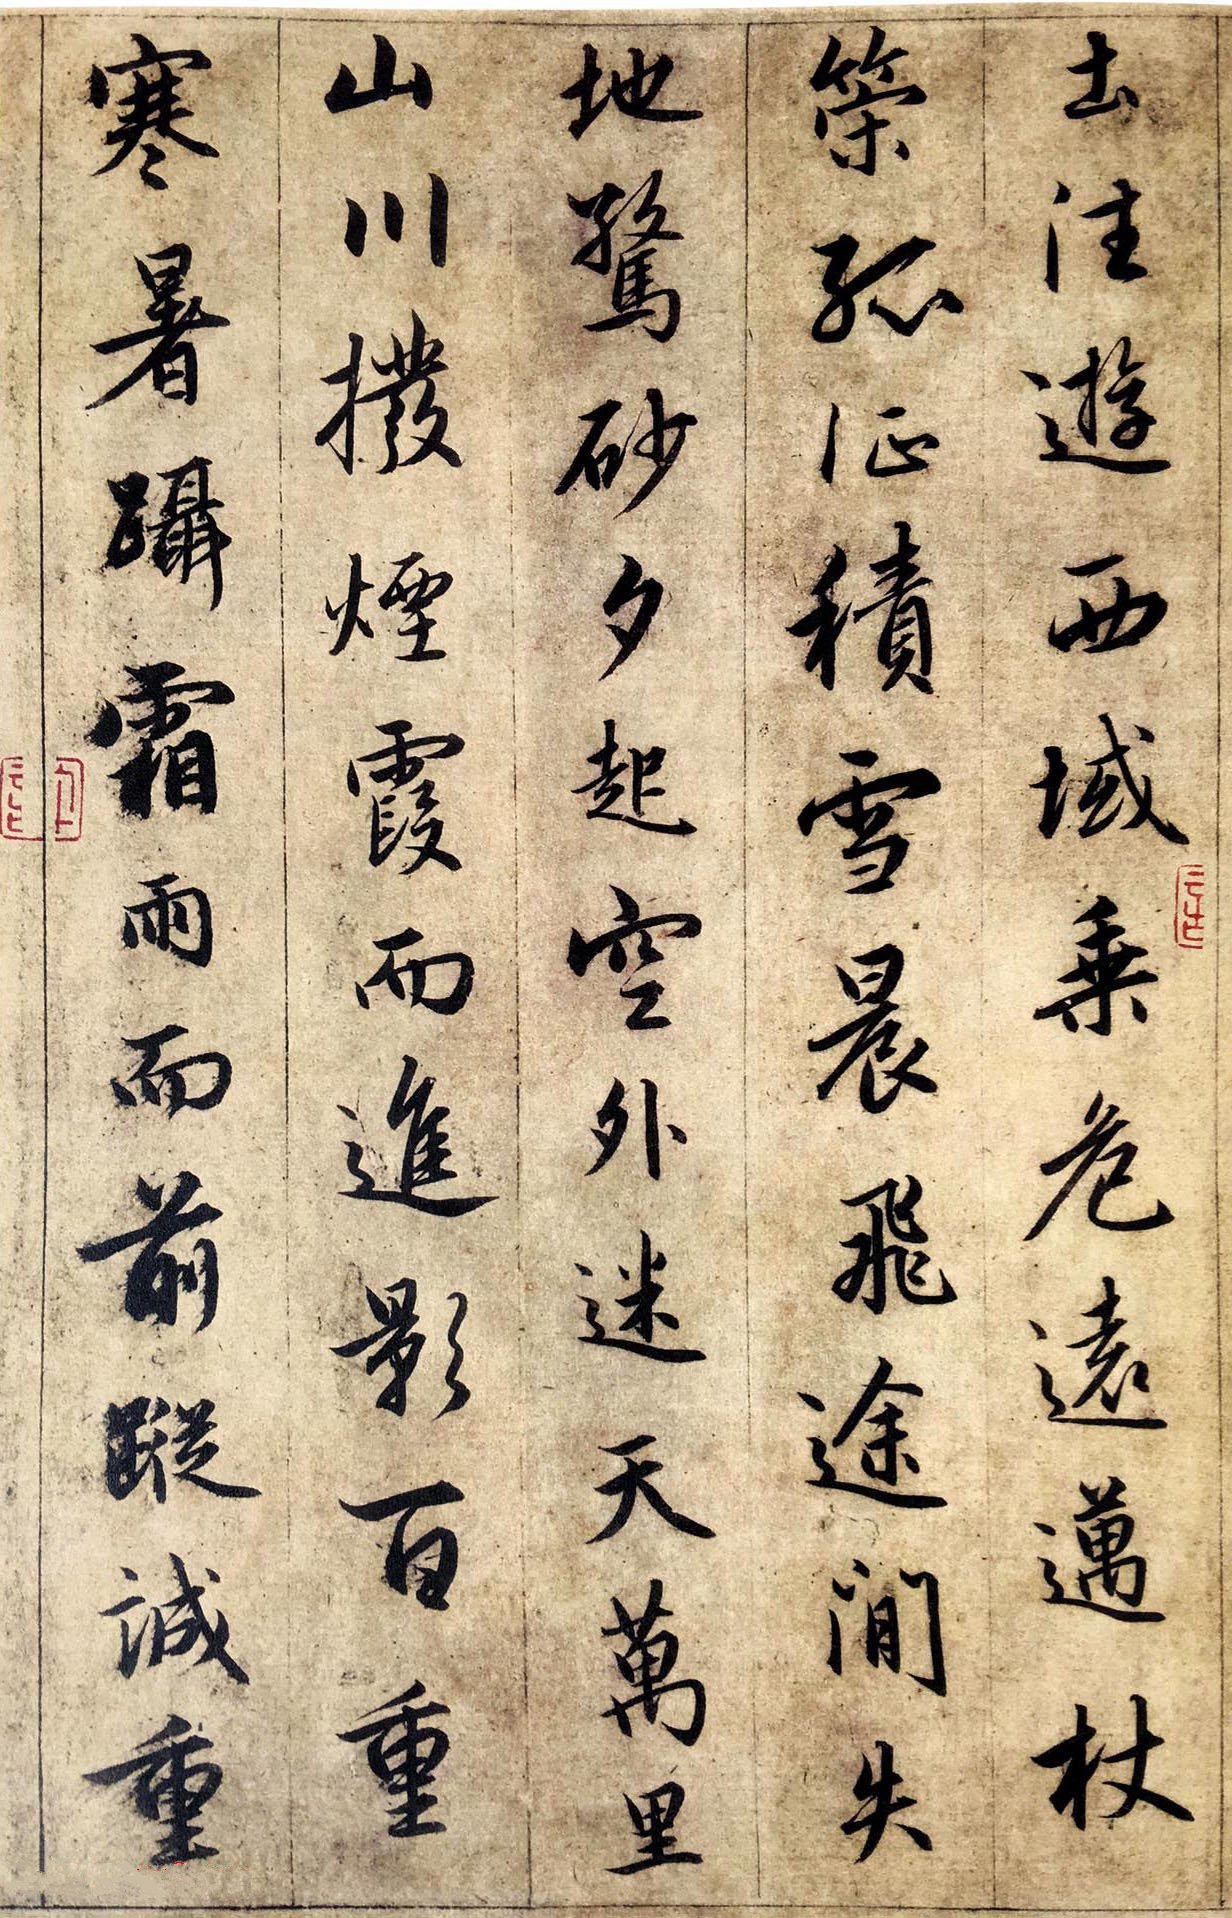 出往遊西域乗危遠邁杖
策孤征積雪晨飛途間失
地驚砂夕起空外迷天萬里
山川撥煙霞而進影百重
寒暑躡霜雨而前蹤誠重